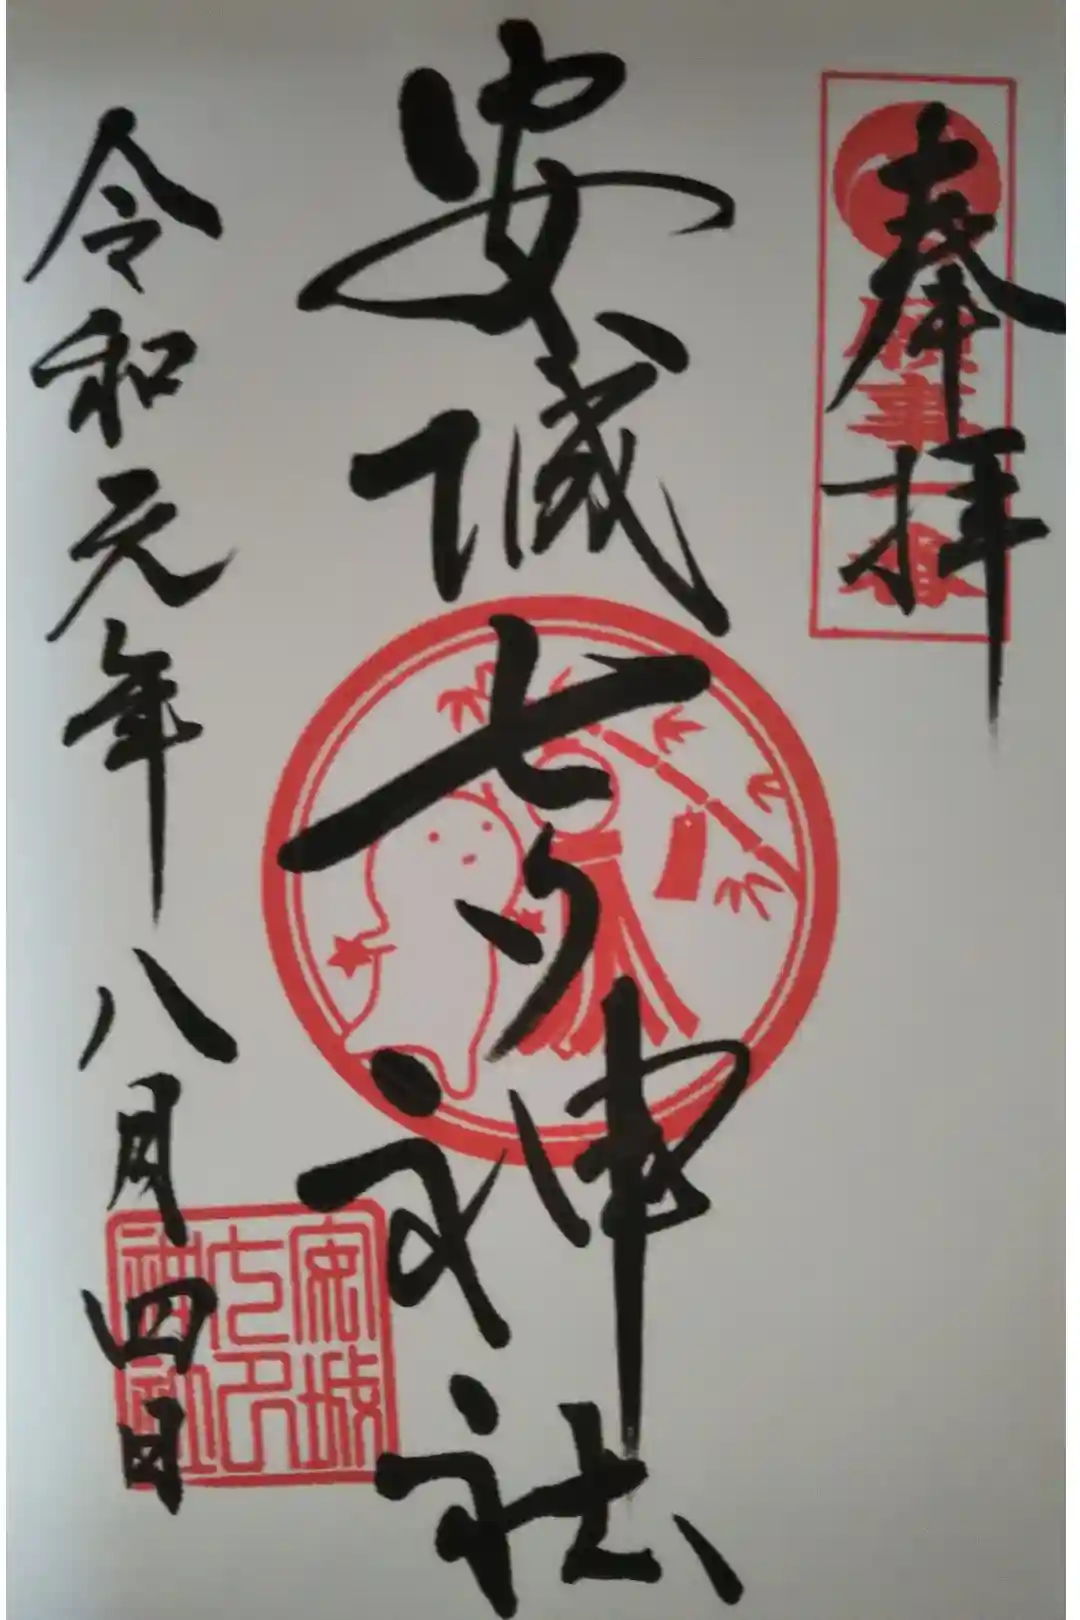 奉拝
願事一番
安城七夕神社
令和元年八月四日
安城
七夕
神社